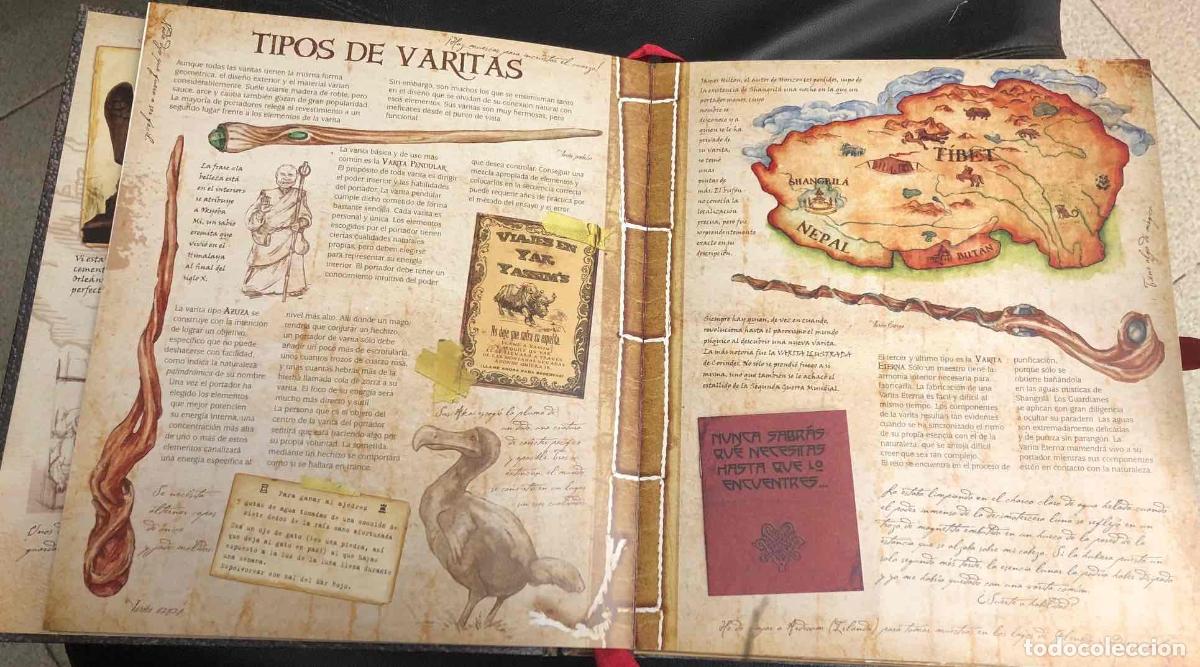 TIPOS DE VARITAS
Aunque todas las varitas tienen la misma forma
geométrica, el diseño exterior y el material varían
considerablemente. Suele usarse madera de roble, pero
sauce, arce y caoba también gozan de gran popularidad.
La mayoría de portadores relega el revestimiento a un
segundo lugar frente a los elementos de la varita
Sin embargo, son muchos los que se ensimisman tanto
en el diseño que se olvidan de su conexión natural con
esos elementos. Sus varitas son muy hermosas, pero
ineficaces desde el punto de vista
funcional.
La frase «la
belleza está
en el interior»
se atribuye
a Mkyoba
Mi, un sabio
eremita que
vivió en el
Himalaya
al final del
siglo X.
La varita básica y de uso más
común es la VARITA PENDULAR.
El propósito de toda varita es dirigir
el poder interior y las habilidades
del portador. La varita pendular
cumple dicho cometido de forma
bastante sencilla. Cada varita es
personal y única. Los elementos
escogidos por el portador tienen
ciertas cualidades naturales
propias, pero deben elegirse
para representar su energía
interior. El portador debe tener un
conocimiento intuitivo del poder
que desea controlar. Conseguir una
mezcla apropiada de elementos y
colocarlos en la secuencia correcta
puede requerir años de práctica por
el método del ensayo y el error.
VIAJES EN
YAK
YASSIM'S
No deje que sufra su espalda.
LLAME AHORA PARA RESERVAR
La varita tipo AZUZA se
construye con la intención
de lograr un objetivo
específico que no puede
deshacerse con facilidad,
como indica la naturaleza
palindrómica de su nombre
Una vez el portador ha
elegido los elementos
que mejor potencien
su energía interna, una
concentración más alta
de uno o más de estos
elementos canalizará
una energía específica al
nivel más alto. Allí donde un mago
tendría que conjurar un hechizo,
un portador de varita sólo debe
añadir un poco más de escrofularia,
unos cuantos trozos de cuarzo rosa,
y unas cuantas hebras más de la
hierba llamada cola de zorra a su
varita. El foco de su energía será
mucho más directo y sutil
La persona que es el objeto del
centro de la varita del portador
sentirá que está haciendo algo por
su propia voluntad. La sometida
mediante un hechizo se comportará
como si se hallara en trance.
Se necesita
Para ganar al ajedrez
7 gotas de agua tomadas de una cocción de
siete dedos de la raíz mano afortunada
Usa un ojo de gato (los una piedra, así
que deja al gato en paz) al que hayas
expuesto a la luz de la luna llena durante
una semana.
Espolvorear con sal del Mar Rojo.
James Hilton, el autor de Horizontes perdidos, supo de
la existencia de Shangrilá una noche en la que un
portador manet, cuyo
nombre se
desconoce y a
quien se le ha
privado de
su varita,
se tomó
unas
pintas de
más. El bufón
no conocía la
localización
precisa, pero fue
sorprendentemente
exacto en su
descripción.
TÍBET
SHANGRILÁ
NEPAL
BUTÁN
Siempre hay quien, de vez en cuando,
revoluciona hasta el paroxismo el mundo
mágico al descubrir una nueva varita.
La más notoria fue la VARITA ILUSTRADA
de Corindel. No sólo se prendió fuego a sí
misma, sino que también se le achaca el
estallido de la Segunda Guerra Mundial.
El tercer y último tipo es la VARITA
ETERNA. Sólo un maestro tiene la
armonía interior necesaria para
fabricarla. La fabricación de una
Varita Eterna es fácil y difícil al
mismo tiempo. Los componentes
de la varita resultan con evidentes
cuando se ha sincronizado el ritmo
de su propia esencia con el de la
naturaleza, que se antoja difícil
creer que sea tan complejo.
El reto se encuentra en el proceso de
purificación,
porque sólo se
obtiene bañándola
en las aguas místicas de
Shangrilá. Los Guardianes
se aplican con gran diligencia
a ocultar su paradero. Las aguas
son extremadamente delicadas
y de pureza sin parangón. La
Varita Eterna mantendrá vivo a su
portador mientras sus componentes
estén en contacto con la naturaleza.
NUNCA SABRÁS
QUE NECESITAS
HASTA QUE LO
ENCUENTRES...
La estaba limpiando en el charco claro de agua helada cuando
el poder inmenso de la decimotercera luna se reflejó en un
trozo de magnetita embutido en un hueco de la pared de la
estancia que se alzaba sobre mi cabeza. Si la hubiera puesto un
solo segundo más tarde, la esencia lunar la podría haber disipado
y yo me habría quedado con una varita común.
¿Suerte o habilidad?
todocoleccion